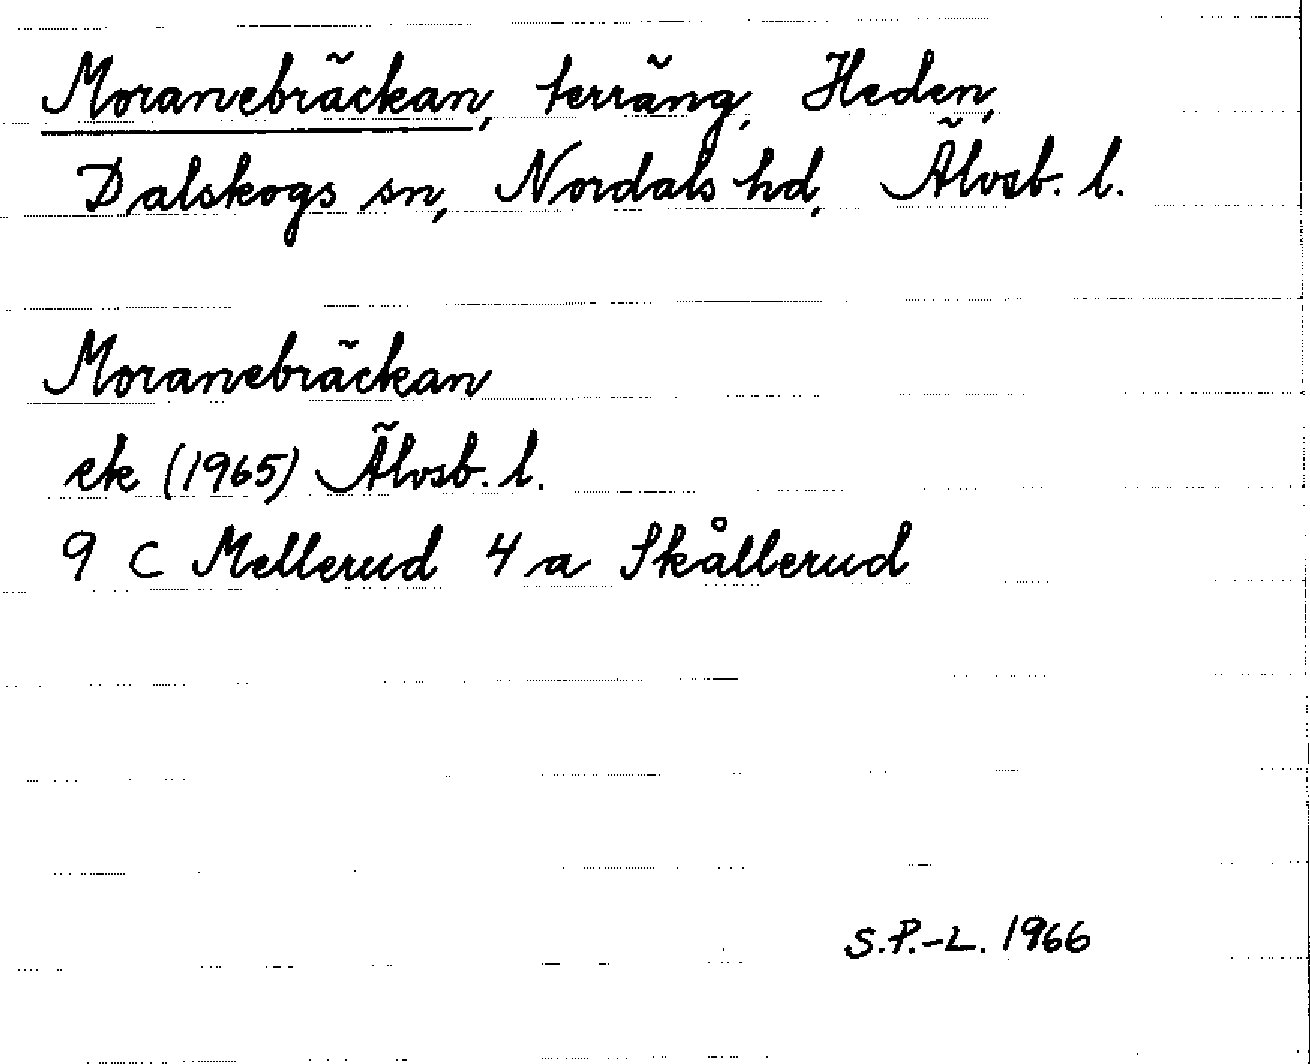 Moranebräckan, terräng, Heden,
Dalskogs sn, Nordals hd, Älvsb. l.
Moranebräckan
ek (1965) Älvsb. l.
9 C Mellerud 4 a Skållerud
S.P.-L. 1966